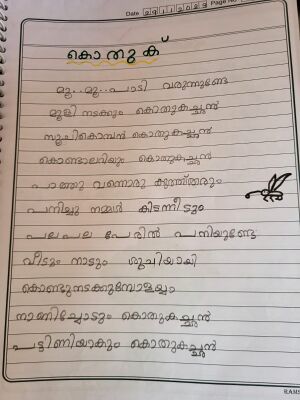 Date 29112023 Page No
കൊതുക്
മൂ..മൂ..പാടി വരുന്നുണ്ടേ
മൂളി നടക്കും കൊതുകച്ചൻ
സൂചികൊമ്പൻ കൊതുകച്ചൻ
കൊണ്ടാലറിയും കൊതുകച്ചൻ
പാത്തു വന്നൊരു കുത്ത്തരും
പനിച്ചു നമ്മൾ കിടന്നീടും
പലപല പേരിൻ പനിയുണ്ടേ
വീടും നാടും ശുചിയായി
കൊണ്ടുനടക്കുമ്പോളയ്യാ
നാണിച്ചോടും കൊതുകച്ചൻ
പട്ടിണിയാകും കൊതുകച്ചൻ